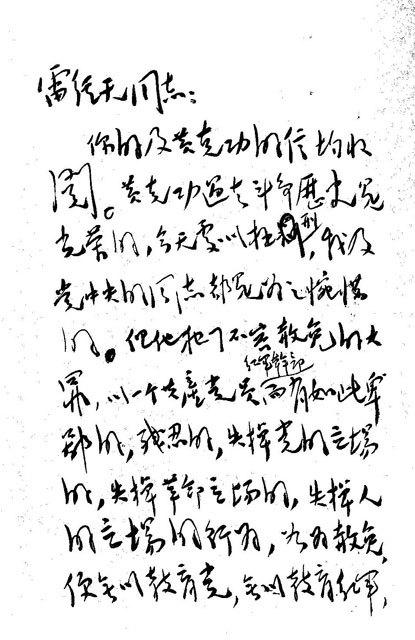 雷经天同志：
你的及黄克功的信均收
阅。黄克功过去斗争歷史是
光荣的，今天处以极刑，我及
党中央的同志都是为之惋惜
的。但他犯了不容赦免的大
罪，以一个共產党员红军幹部而有如此卑
鄙的，残忍的，失掉党的立場
的，失掉革命立場的，失掉人
的立場的行为，如为赦免，
便无以教育党，无以教育红军，